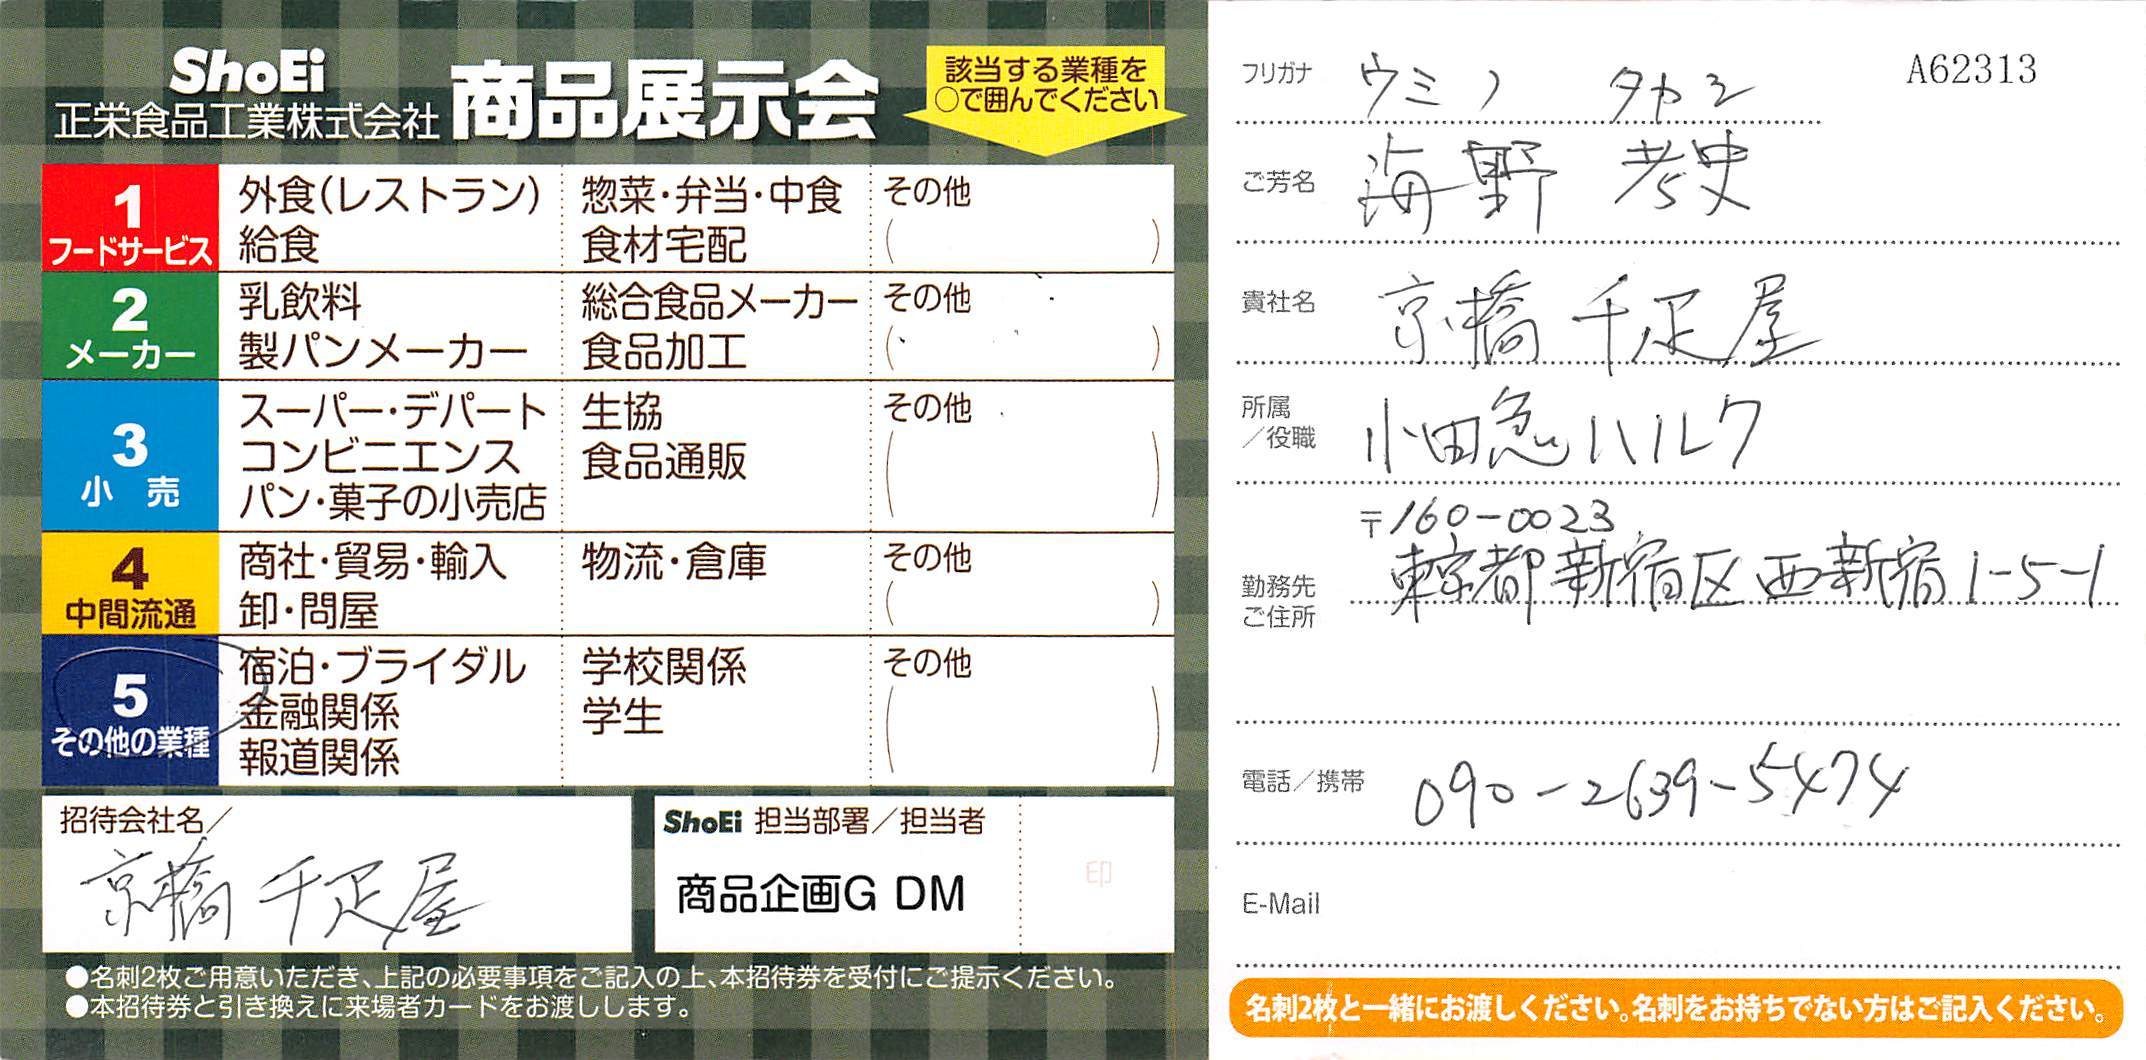 ShoEi
正栄食品工業株式会社 商品展示会
該当する業種を
○で囲んでください
1
フードサービス
外食(レストラン)
給食
惣菜・弁当・中食
食材宅配
その他
(　)
2
メーカー
乳飲料
製パンメーカー
総合食品メーカー
食品加工
その他
(　)
3
小 売
スーパー・デパート
コンビニエンス
パン・菓子の小売店
生協
食品通販
その他
(　)
4
中間流通
商社・貿易・輸入
卸・問屋
物流・倉庫
その他
(　)
5
その他の業種
宿泊・ブライダル
金融関係
報道関係
学校関係
学生
その他
(　)
招待会社名/
京橋千疋屋
ShoEi 担当部署/担当者
商品企画G DM
印
●名刺2枚ご用意いただき、上記の必要事項をご記入の上、本招待券を受付にご提示ください。
●本招待券と引き換えに来場者カードをお渡しします。
A62313
フリガナ ウミノ タカシ
ご芳名 海野 考史
貴社名 京橋千疋屋
所属
/役職 小田急ハルク
〒160-0023
勤務先
ご住所 東京都新宿区西新宿1-5-1
電話/携帯 090-2639-5474
E-Mail
名刺2枚と一緒にお渡しください。名刺をお持ちでない方はご記入ください。